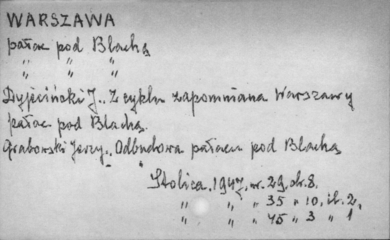 WARSZAWA
pałac pod Blachą
" " "
Dyjeciński J.. Z cyklu zapomniana Warszawy
pałac pod Blachą.
Graborski Jerzy., Odbudowa pałacu pod Blachą
Stolica. 1947, nr. 29. str. 8.
" " " 35 " 10, il. 2,
" " " 45 " 3 " 1